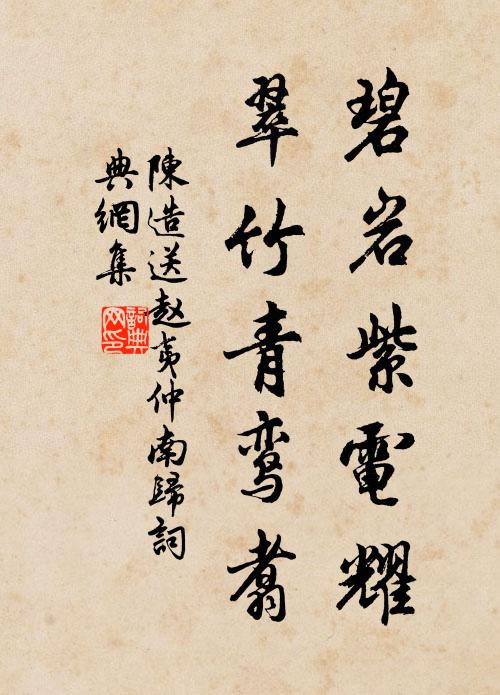 碧岩紫電耀
翠竹青鸾翥
陳造送赵夷仲南歸詞
典網集
詞典網印